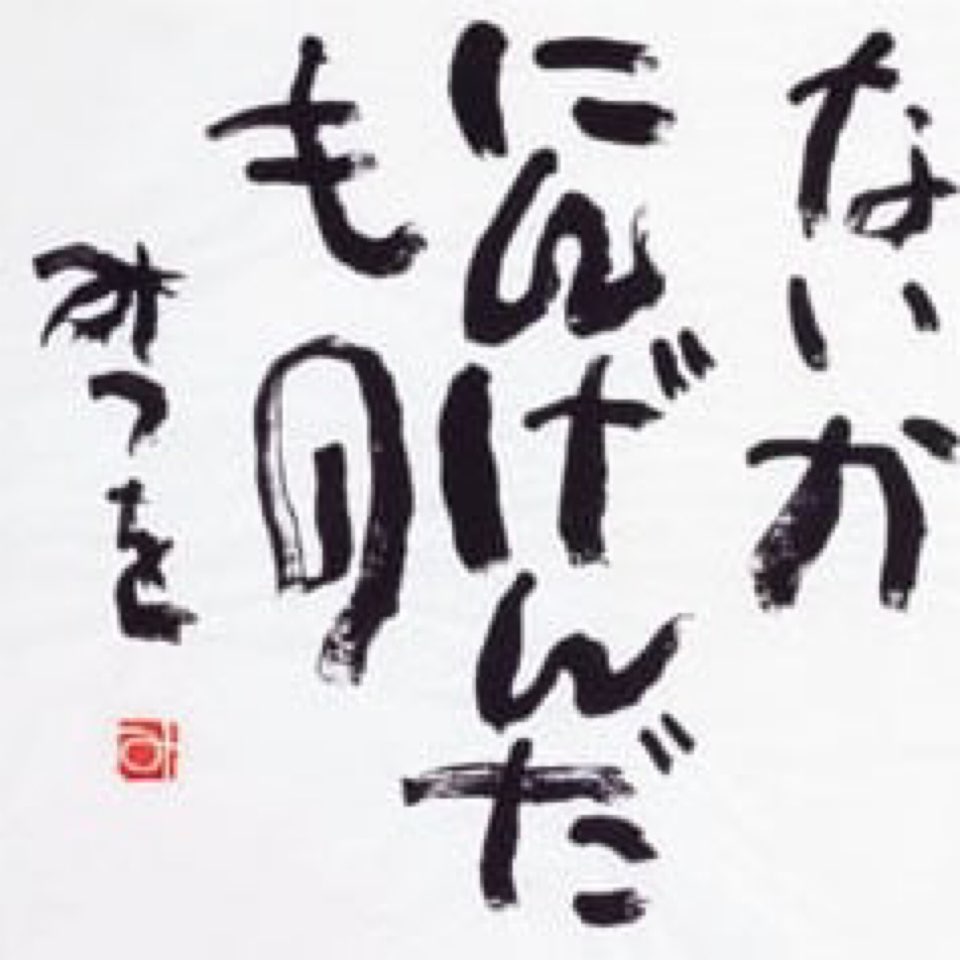 ないか
にんげんだ
もの
みつを